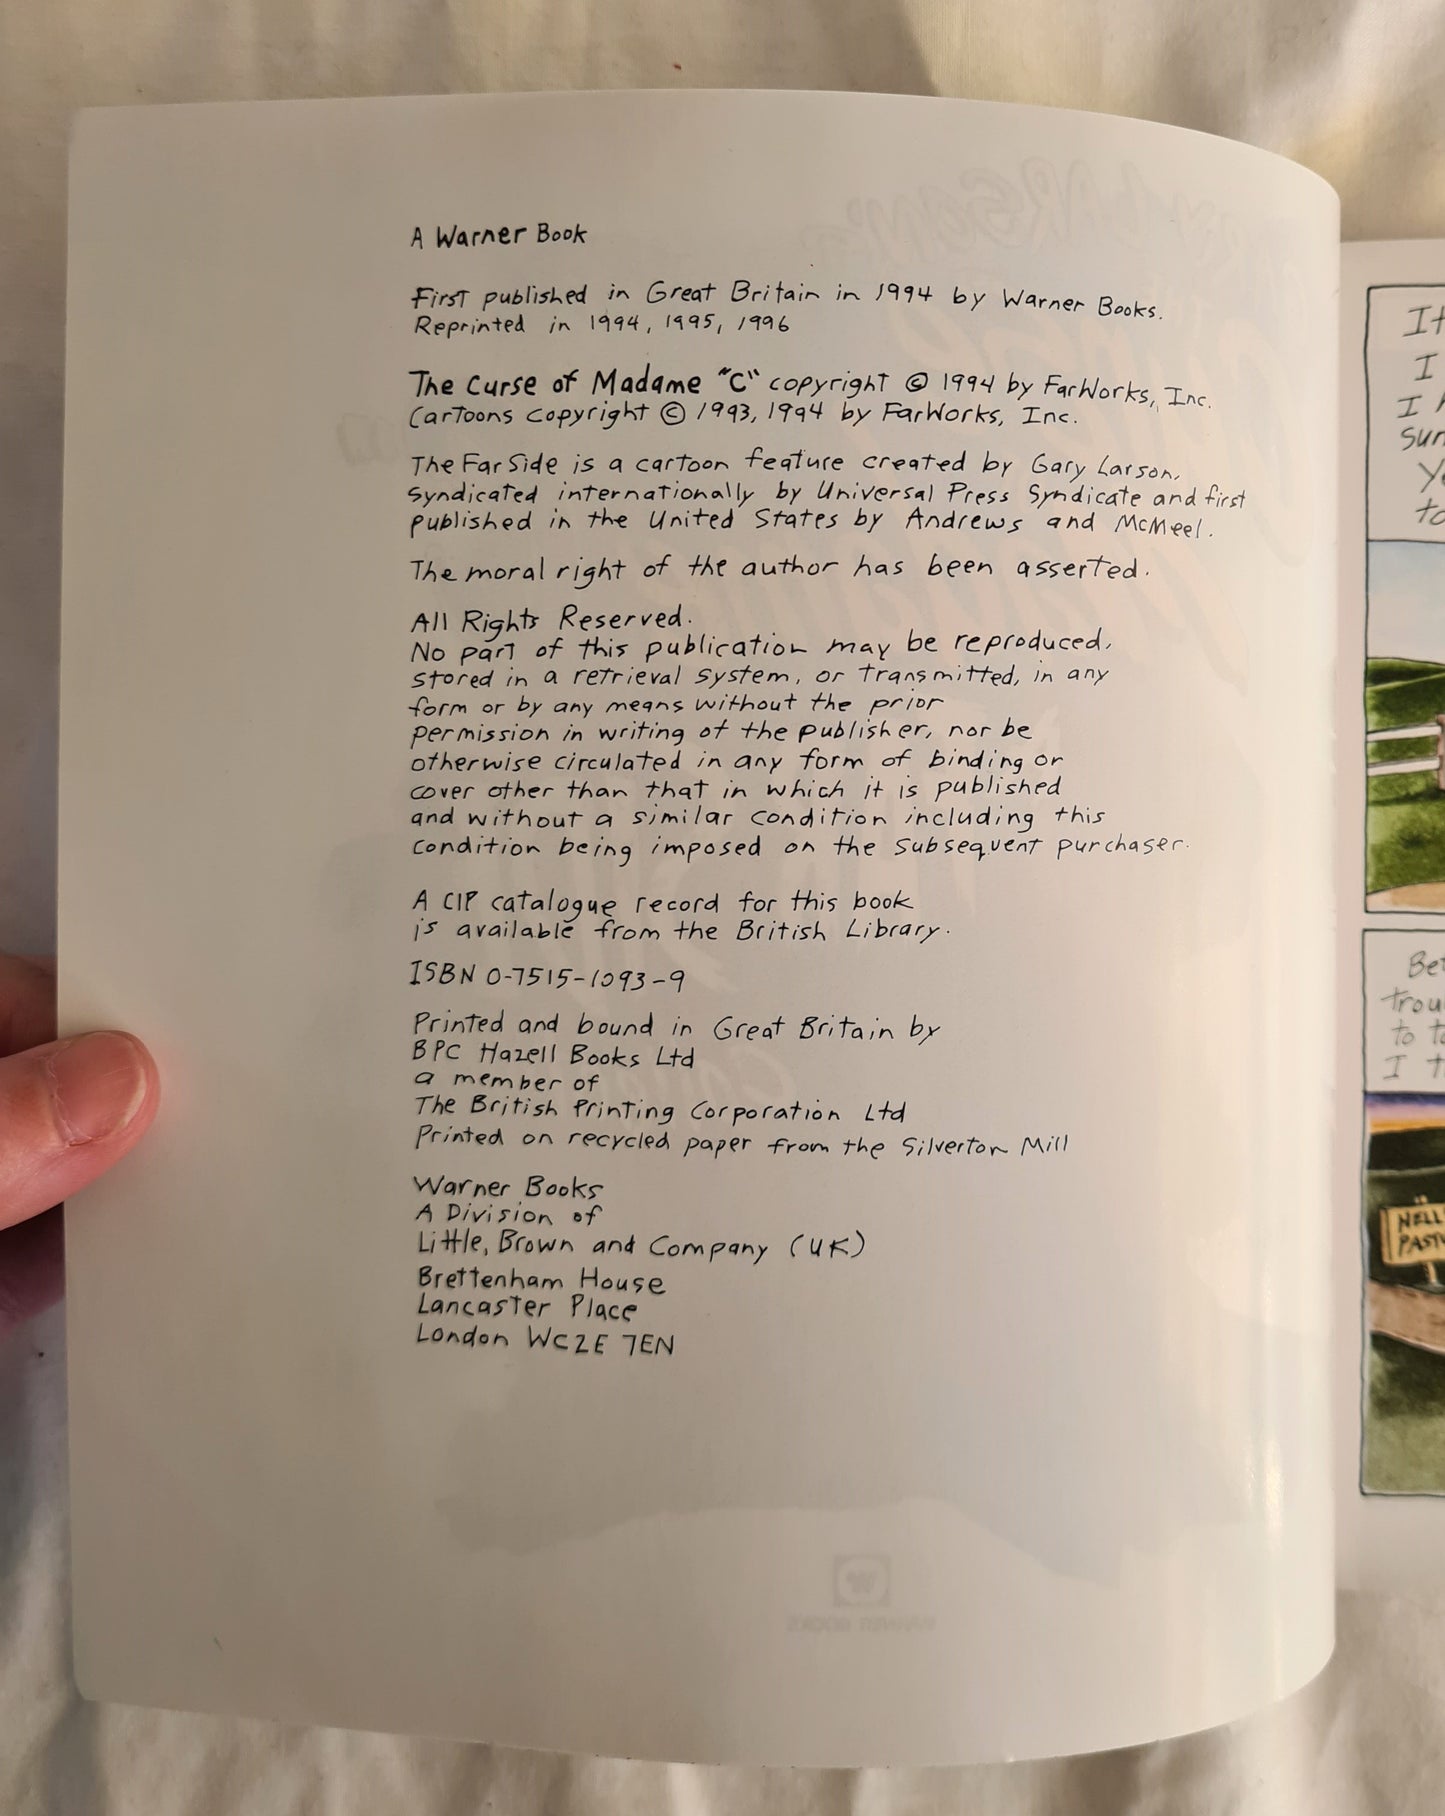 A Warner Book
First published in Great Britain in 1994 by Warner Books.
Reprinted in 1994, 1995, 1996
The Curse of Madame "C" copyright © 1994 by FarWorks, Inc.
Cartoons copyright © 1993, 1994 by FarWorks, Inc.
The Far Side is a cartoon feature created by Gary Larson,
syndicated internationally by Universal Press Syndicate and first
published in the United States by Andrews and McMeel.
The moral right of the author has been asserted.
All Rights Reserved.
No part of this publication may be reproduced,
stored in a retrieval system, or transmitted, in any
form or by any means without the prior
permission in writing of the publisher, nor be
otherwise circulated in any form of binding or
cover other than that in which it is published
and without a similar condition including this
condition being imposed on the subsequent purchaser.
A CIP catalogue record for this book
is available from the British Library.
ISBN 0-7515-1093-9
Printed and bound in Great Britain by
BPC Hazell Books Ltd
a member of
The British Printing Corporation Ltd
Printed on recycled paper from the Silverton Mill
Warner Books
A Division of
Little, Brown and Company (UK)
Brettenham House
Lancaster Place
London WC2E 7EN
I
I
to
Bet
trou
to to
I t
NELL
PASTU